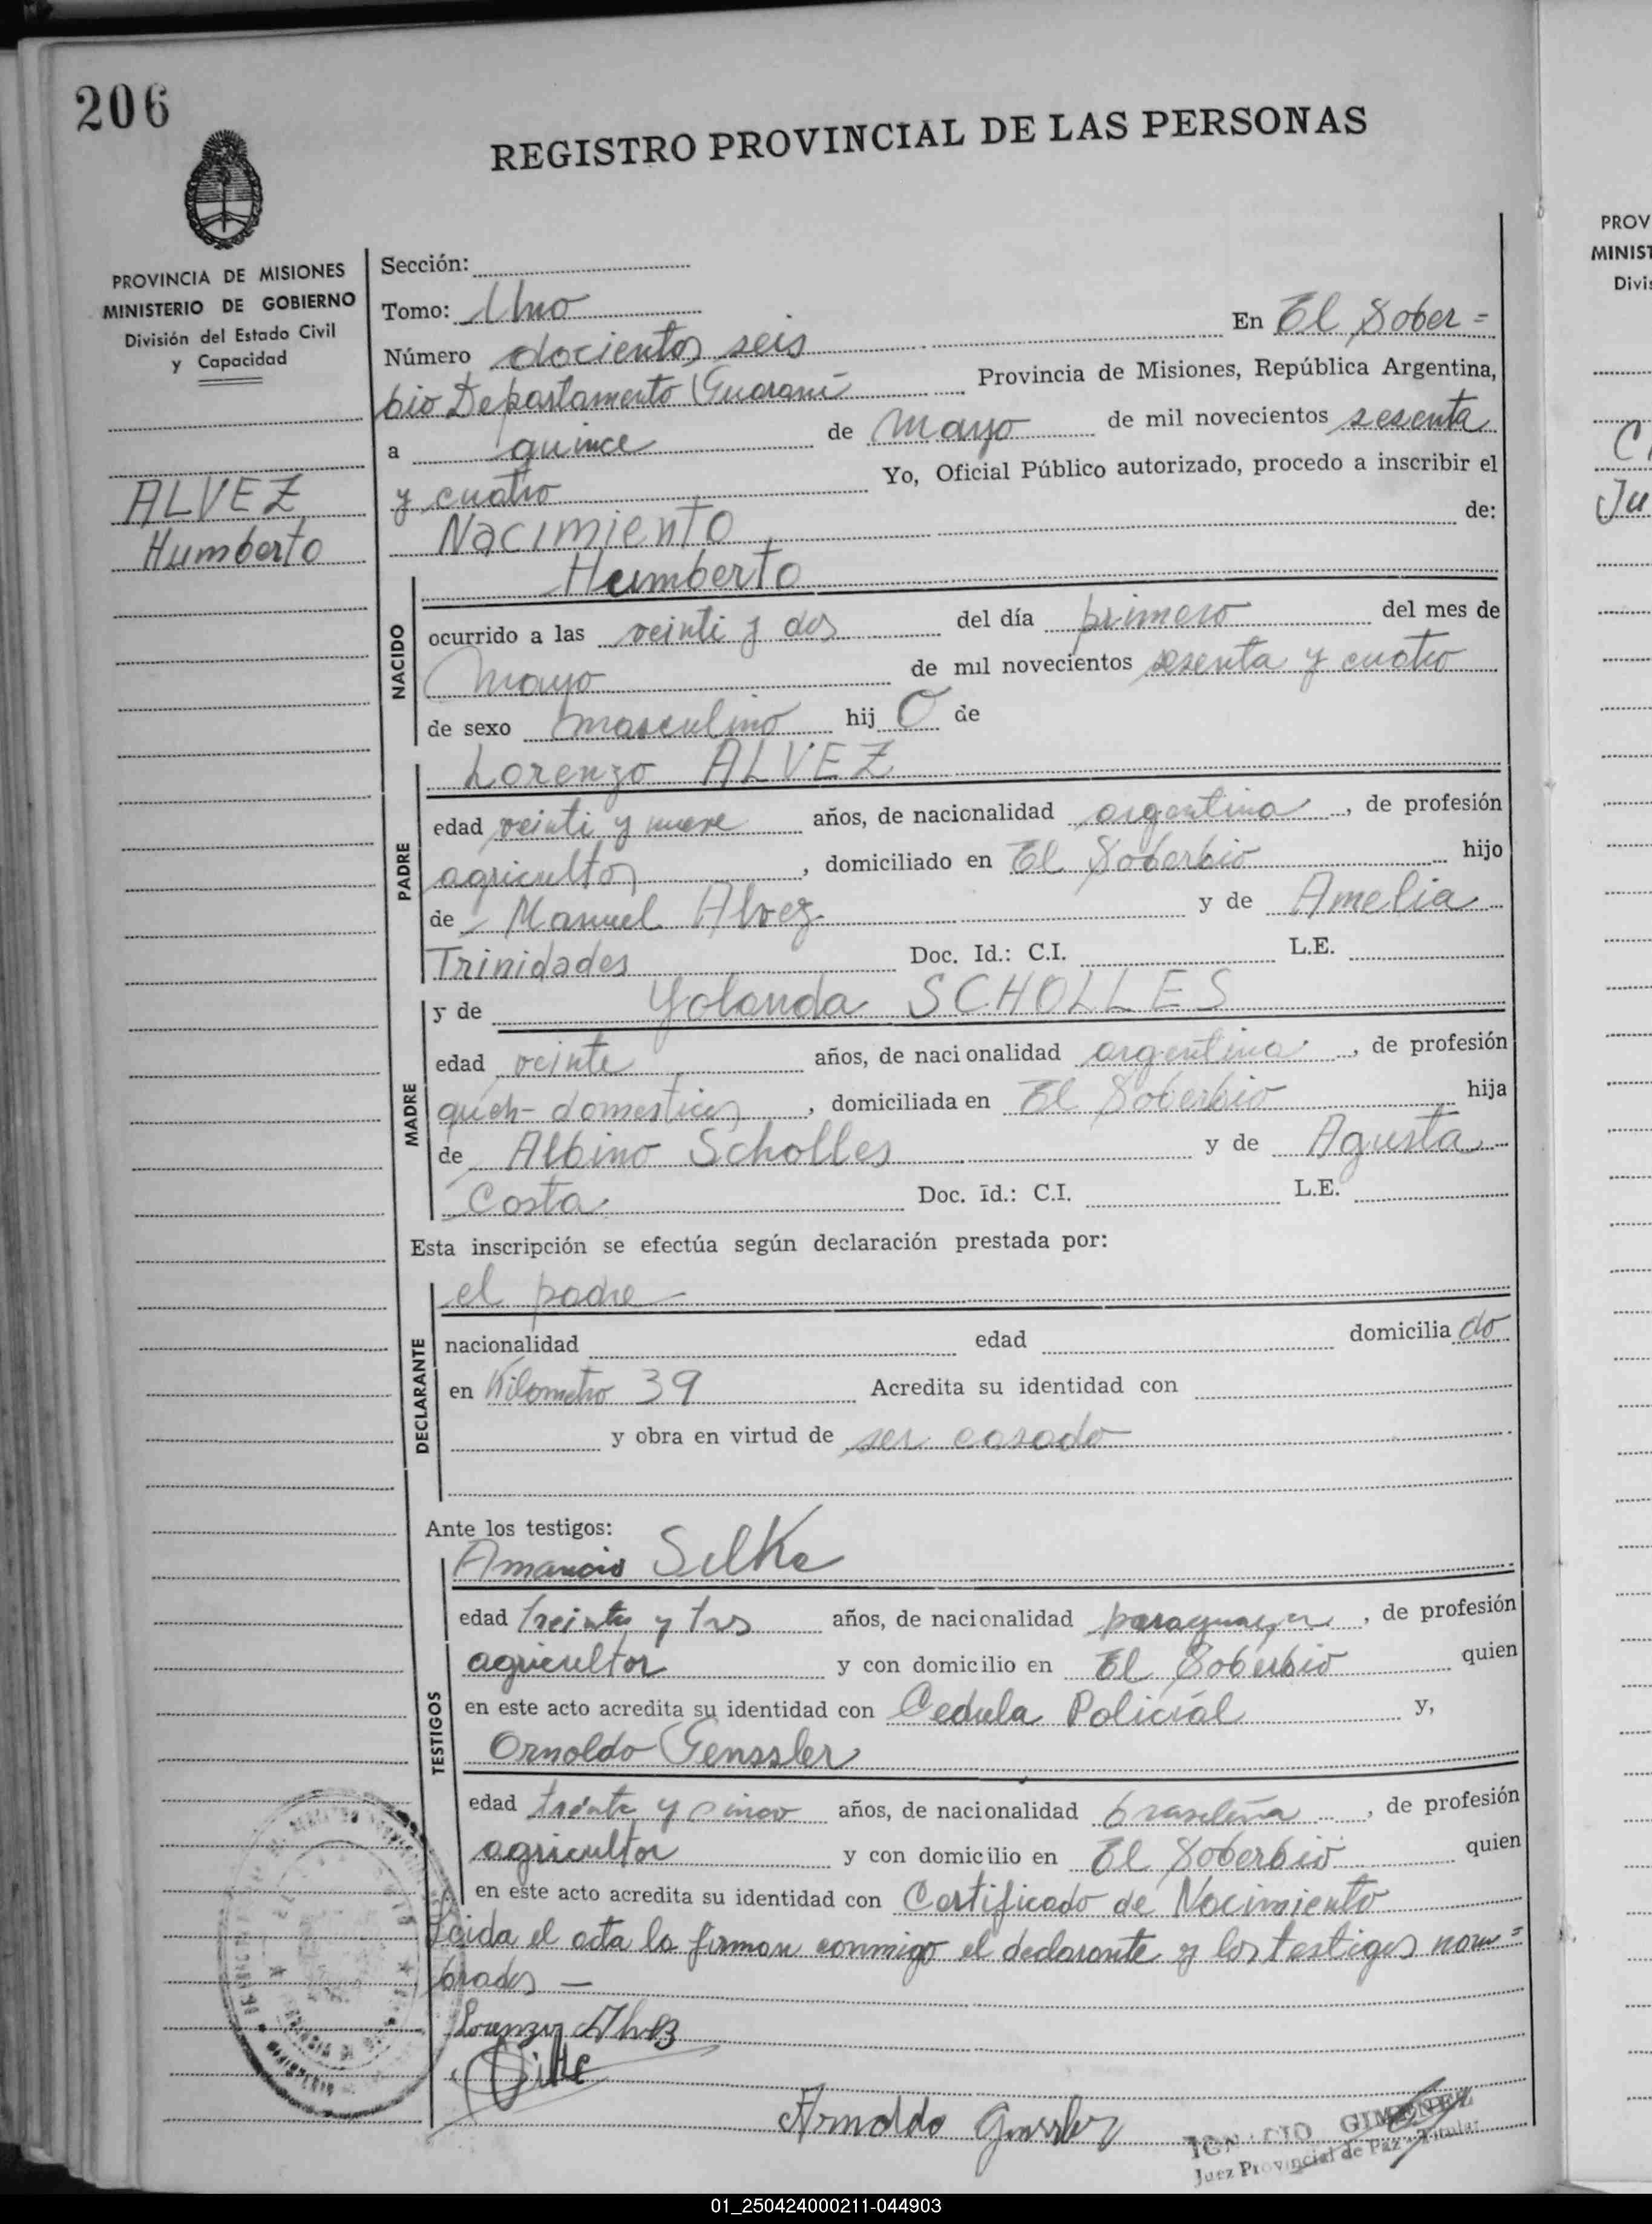 206
REGISTRO PROVINCIAL DE LAS PERSONAS
PROVINCIA DE MISIONES
MINISTERIO DE GOBIERNO
División del Estado Civil
y Capacidad
ALVEZ
Humberto
Sección:
Tomo: Uno
Número docientos seis En El Sober=
bio Departamento Guaraní Provincia de Misiones, República Argentina,
a quince de Mayo de mil novecientos sesenta
y cuatro Yo, Oficial Público autorizado, procedo a inscribir el
Nacimiento de:
Humberto
NACIDO
ocurrido a las veinti y dos del día primero del mes de
Mayo de mil novecientos sesenta y cuatro
de sexo masculino hij O de
PADRE
Lorenzo ALVEZ
edad veinti y nueve años, de nacionalidad argentina, de profesión
agricultor, domiciliado en El Soberbio hijo
de Manuel Alvez y de Amelia
Trinidades Doc. Id.: C.I. L.E.
y de Yolanda SCHOLLES
MADRE
edad veinte años, de nacionalidad argentina, de profesión
domesticos, domiciliada en El Soberbio hija
de Albino Scholles y de Agusta
Costa Doc. id.: C.I. L.E.
Esta inscripción se efectúa según declaración prestada por:
DECLARANTE
el padre
nacionalidad edad domicilia do
en Kilometro 39 Acredita su identidad con
y obra en virtud de ser casado
Ante los testigos:
TESTIGOS
Amancio Silke
edad treinta y tres años, de nacionalidad paraguaya, de profesión
agricultor y con domicilio en El Soberbio quien
en este acto acredita su identidad con Cedula Policial y,
Ornoldo Genssler
edad treinta y cinco años, de nacionalidad brasileña, de profesión
agricultor y con domicilio en El Soberbio quien
en este acto acredita su identidad con Certificado de Nacimiento
Leida el acta la firman conmigo el declarante y los testigos nom=
brados —
Lorenzo Alvez
Silke
Arnoldo Genssler
GIMENEZ
Juez Provincial de Paz - Titular
PROV
MINIST
Divis
Ju
01_250424000211-044903